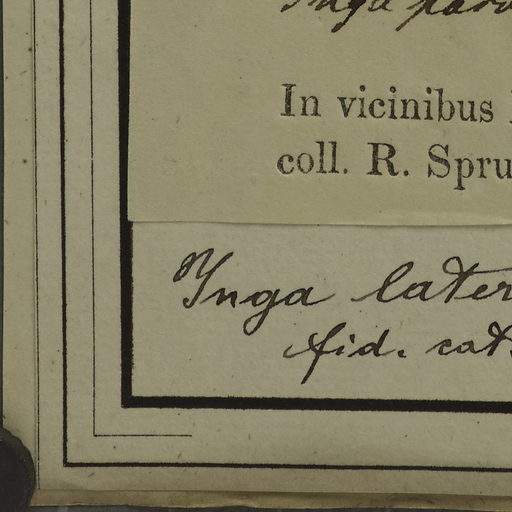 Inga
In vicinibus
coll. R. Spru
Inga later
fid. cat.